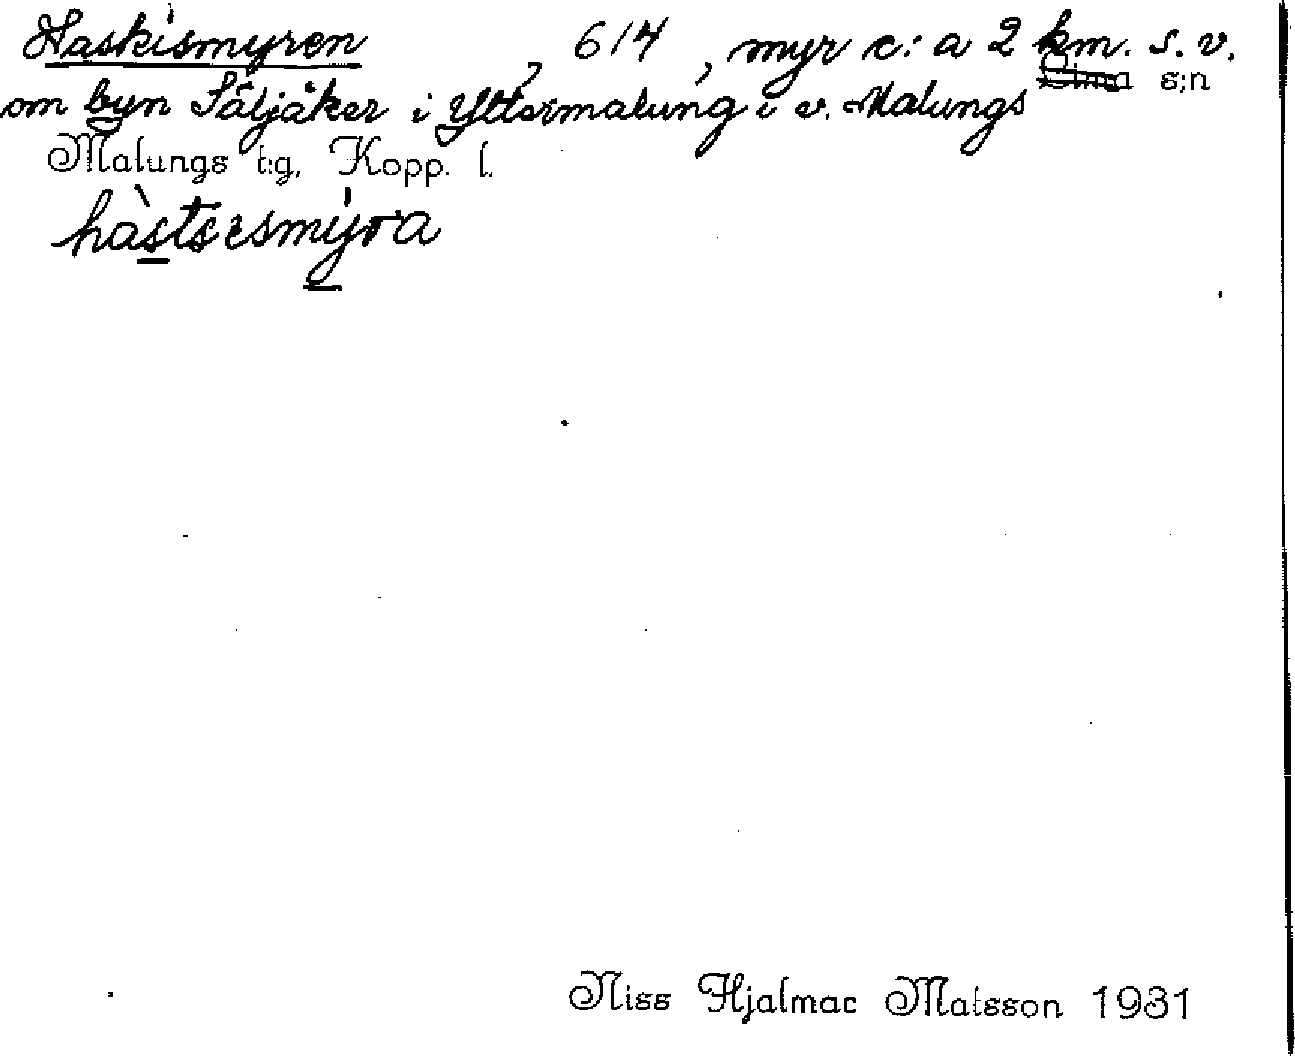 Haskismyren, 614, myr c:a 2 km. s.v.
om byn Säljåker i Yttermalung i v. Malungs s:n
Malungs t:g, Kopp. l.
hàstsesmýra
Niss Hjalmar Matsson 1931